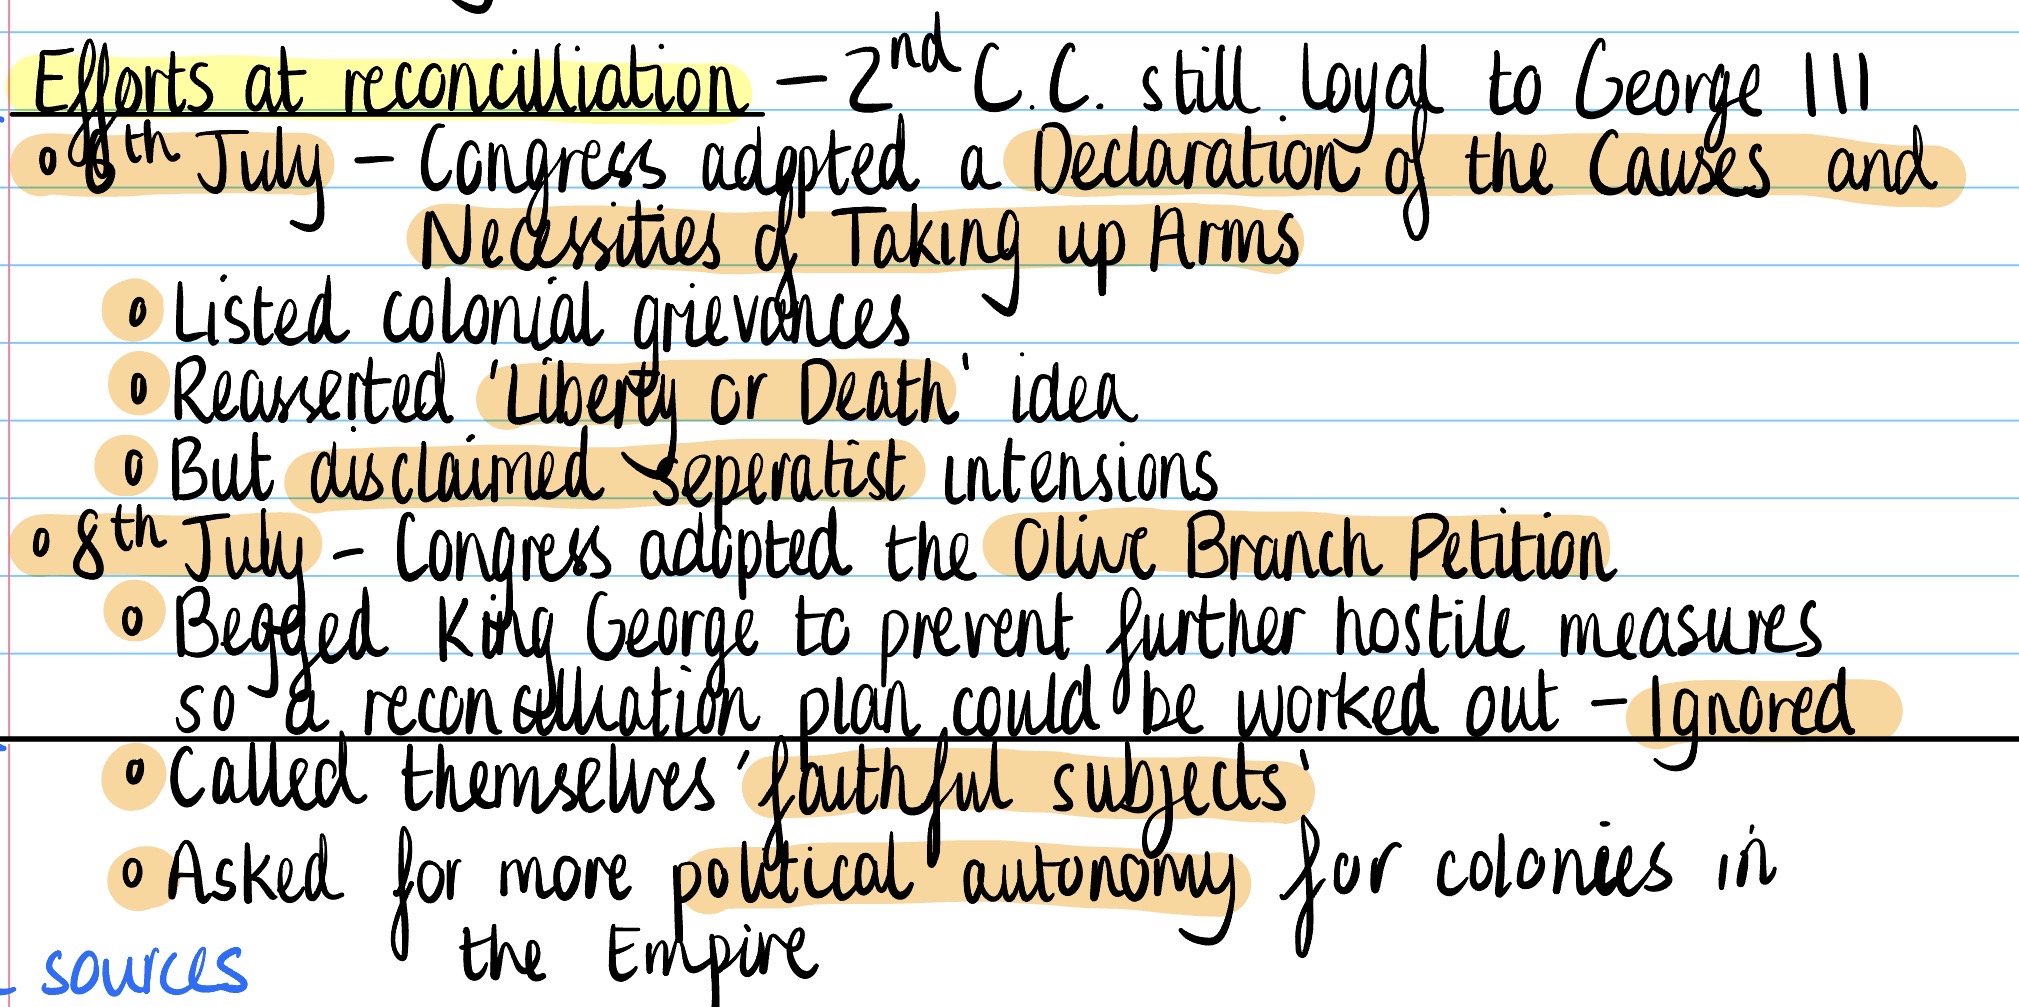 Efforts at reconcilliation – 2nd C.C. still loyal to George III
o 6th July – Congress adopted a Declaration of the Causes and
Necessities of Taking up Arms
o Listed colonial grievances
o Reasserted 'Liberty or Death' idea
o But disclaimed seperatist intensions
o 8th July – Congress adopted the Olive Branch Petition
o Begged King George to prevent further hostile measures
so a reconcilliation plan could be worked out – Ignored
o Called themselves 'faithful subjects'
o Asked for more political autonomy for colonies in
the Empire
sources